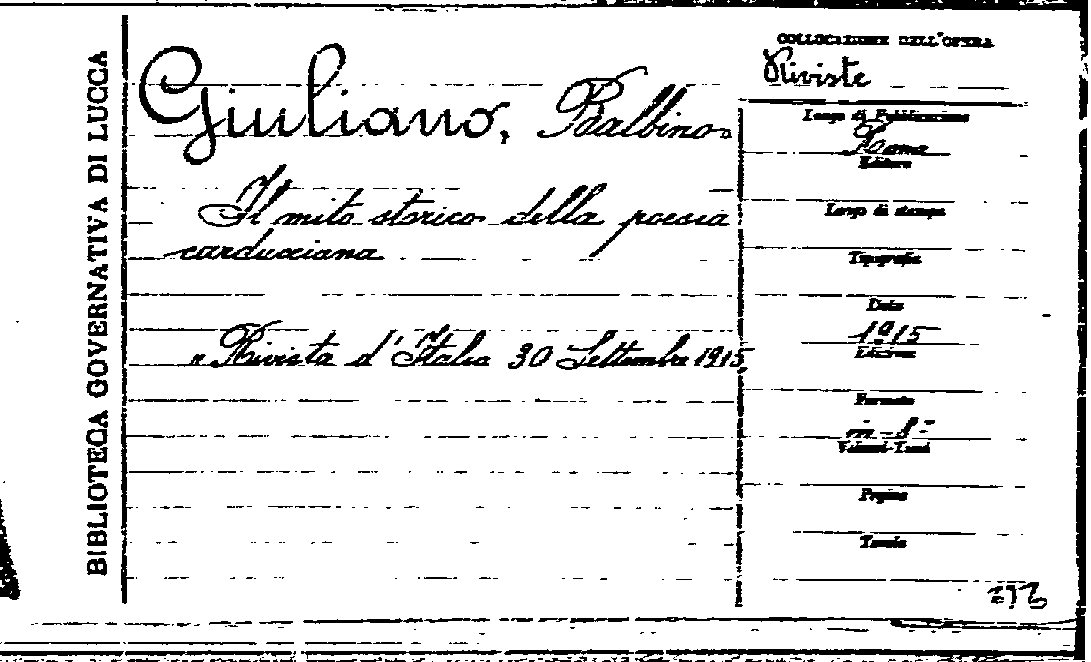 BIBLIOTECA GOVERNATIVA DI LUCCA
Giuliano, Balbino
Il mito storico della poesia
carducciana
"Rivista d'Italia 30 Settembre 1915
COLLOCAZIONE DELL'OPERA
Riviste
Luogo di Pubblicazione
Roma
Editore
Luogo di stampa
Tipografia
Data
1915
Edizione
Formato
in-8°
Volumi-Tomi
Pagine
Tavole